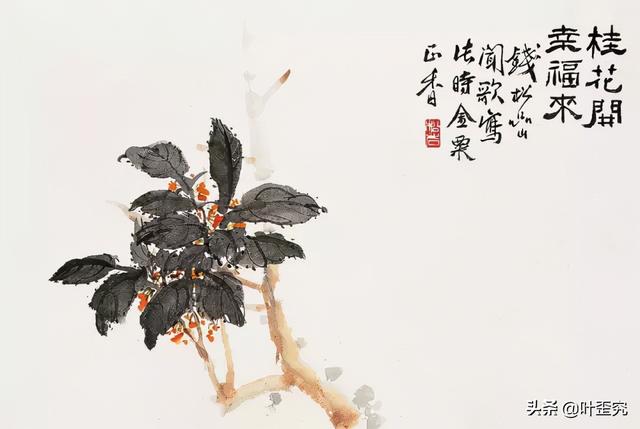 桂花開
幸福來
錢松喦
聞歌寫
此時金粟
正香
头条 @叶歪究